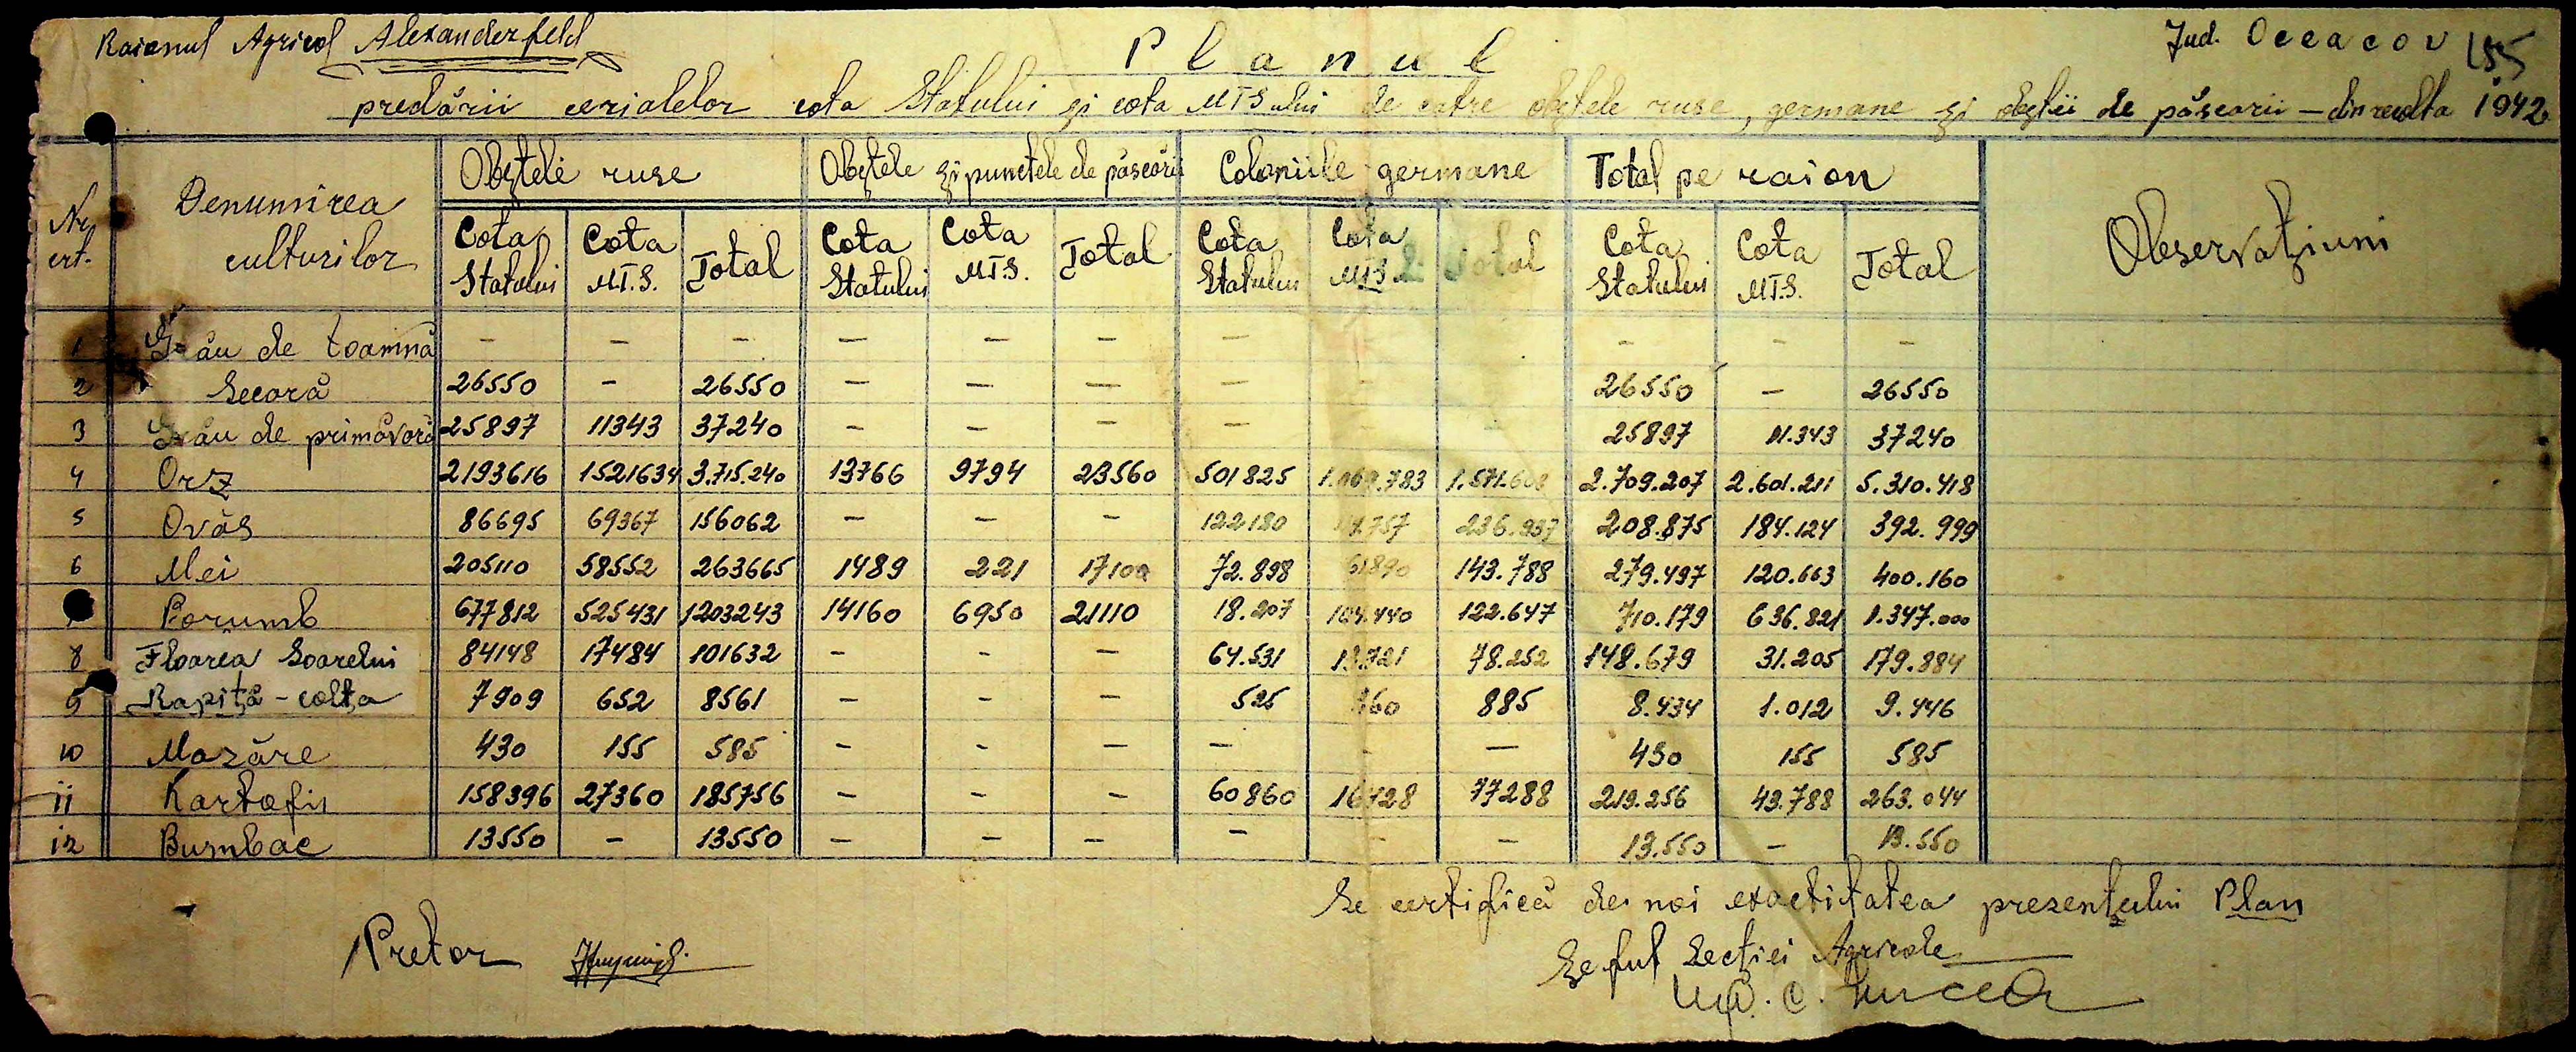 Raionul Agricol Alexanderfeld
Jud. Oceacov 155
Planul
predării cerialelor cota Statului și cota MTSului de catre obștele ruse, germane și obștii de păscarii – din recolta 1942
Nr. crt. Denumirea culturilor Obștele ruse Obștele și punctele de păscării Coloniile germane Total pe raion Observațiuni
Cota Statului Cota M.T.S. Total Cota Statului Cota M.T.S. Total Cota Statului Cota MTS Total Cota Statului Cota M.T.S. Total
1 Grâu de toamnă – – – – – – – – – –
2 Secară 26550 – 26550 – – – – – 26550 – 26550
3 Grâu de primăvară 25897 11343 37240 – – – – – 25897 11.343 37240
4 Orz 2193616 1521634 3.715.240 13766 9794 23560 501825 1.069.783 1.571.608 2.709.207 2.601.211 5.310.418
5 Ovăs 86695 69367 156062 – – – 122180 114.757 236.937 208.875 184.124 392.999
6 Mei 205110 58552 263665 1489 221 17100 72.898 61890 143.788 279.497 120.663 400.160
Porumb 677812 525431 1203243 14160 6950 21110 18.207 104.440 122.647 710.179 636.821 1.347.000
8 Floarea Soarelui 84148 17484 101632 – – – 64.531 13.721 78.252 148.679 31.205 179.884
9 Rapiță - colța 7909 652 8561 – – – 525 360 885 8.434 1.012 9.446
10 Mazăre 430 155 585 – – – – – – 430 155 585
11 Kartofii 158396 27360 185756 – – – 60860 16428 77288 219.256 43.788 263.044
12 Bumbac 13550 – 13550 – – – – – – 13.550 – 13.550
Se certifică de noi exactitatea prezentului Plan
Pretor
Șeful Secției Agricole